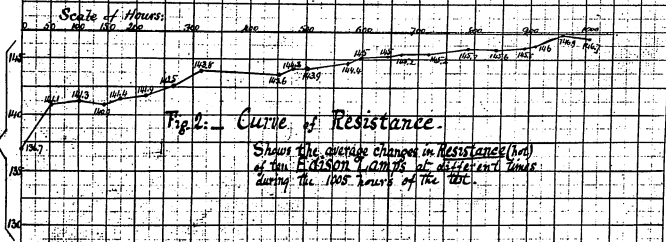 Scale of Hours.
0 50 100 150 200 300 400 500 600 700 800 900 1000
145
140
135
130
136.7 141.1 141.3 140.9 141.4 141.7 142.5 143.8 143.6 143.9 144.4 145 145.2 146 146.9 146.7
Fig. 2:— Curve of Resistance.
Shows the average changes in Resistance (hot)
of ten Edison Lamps at different times
during the 1005 hours of the test.